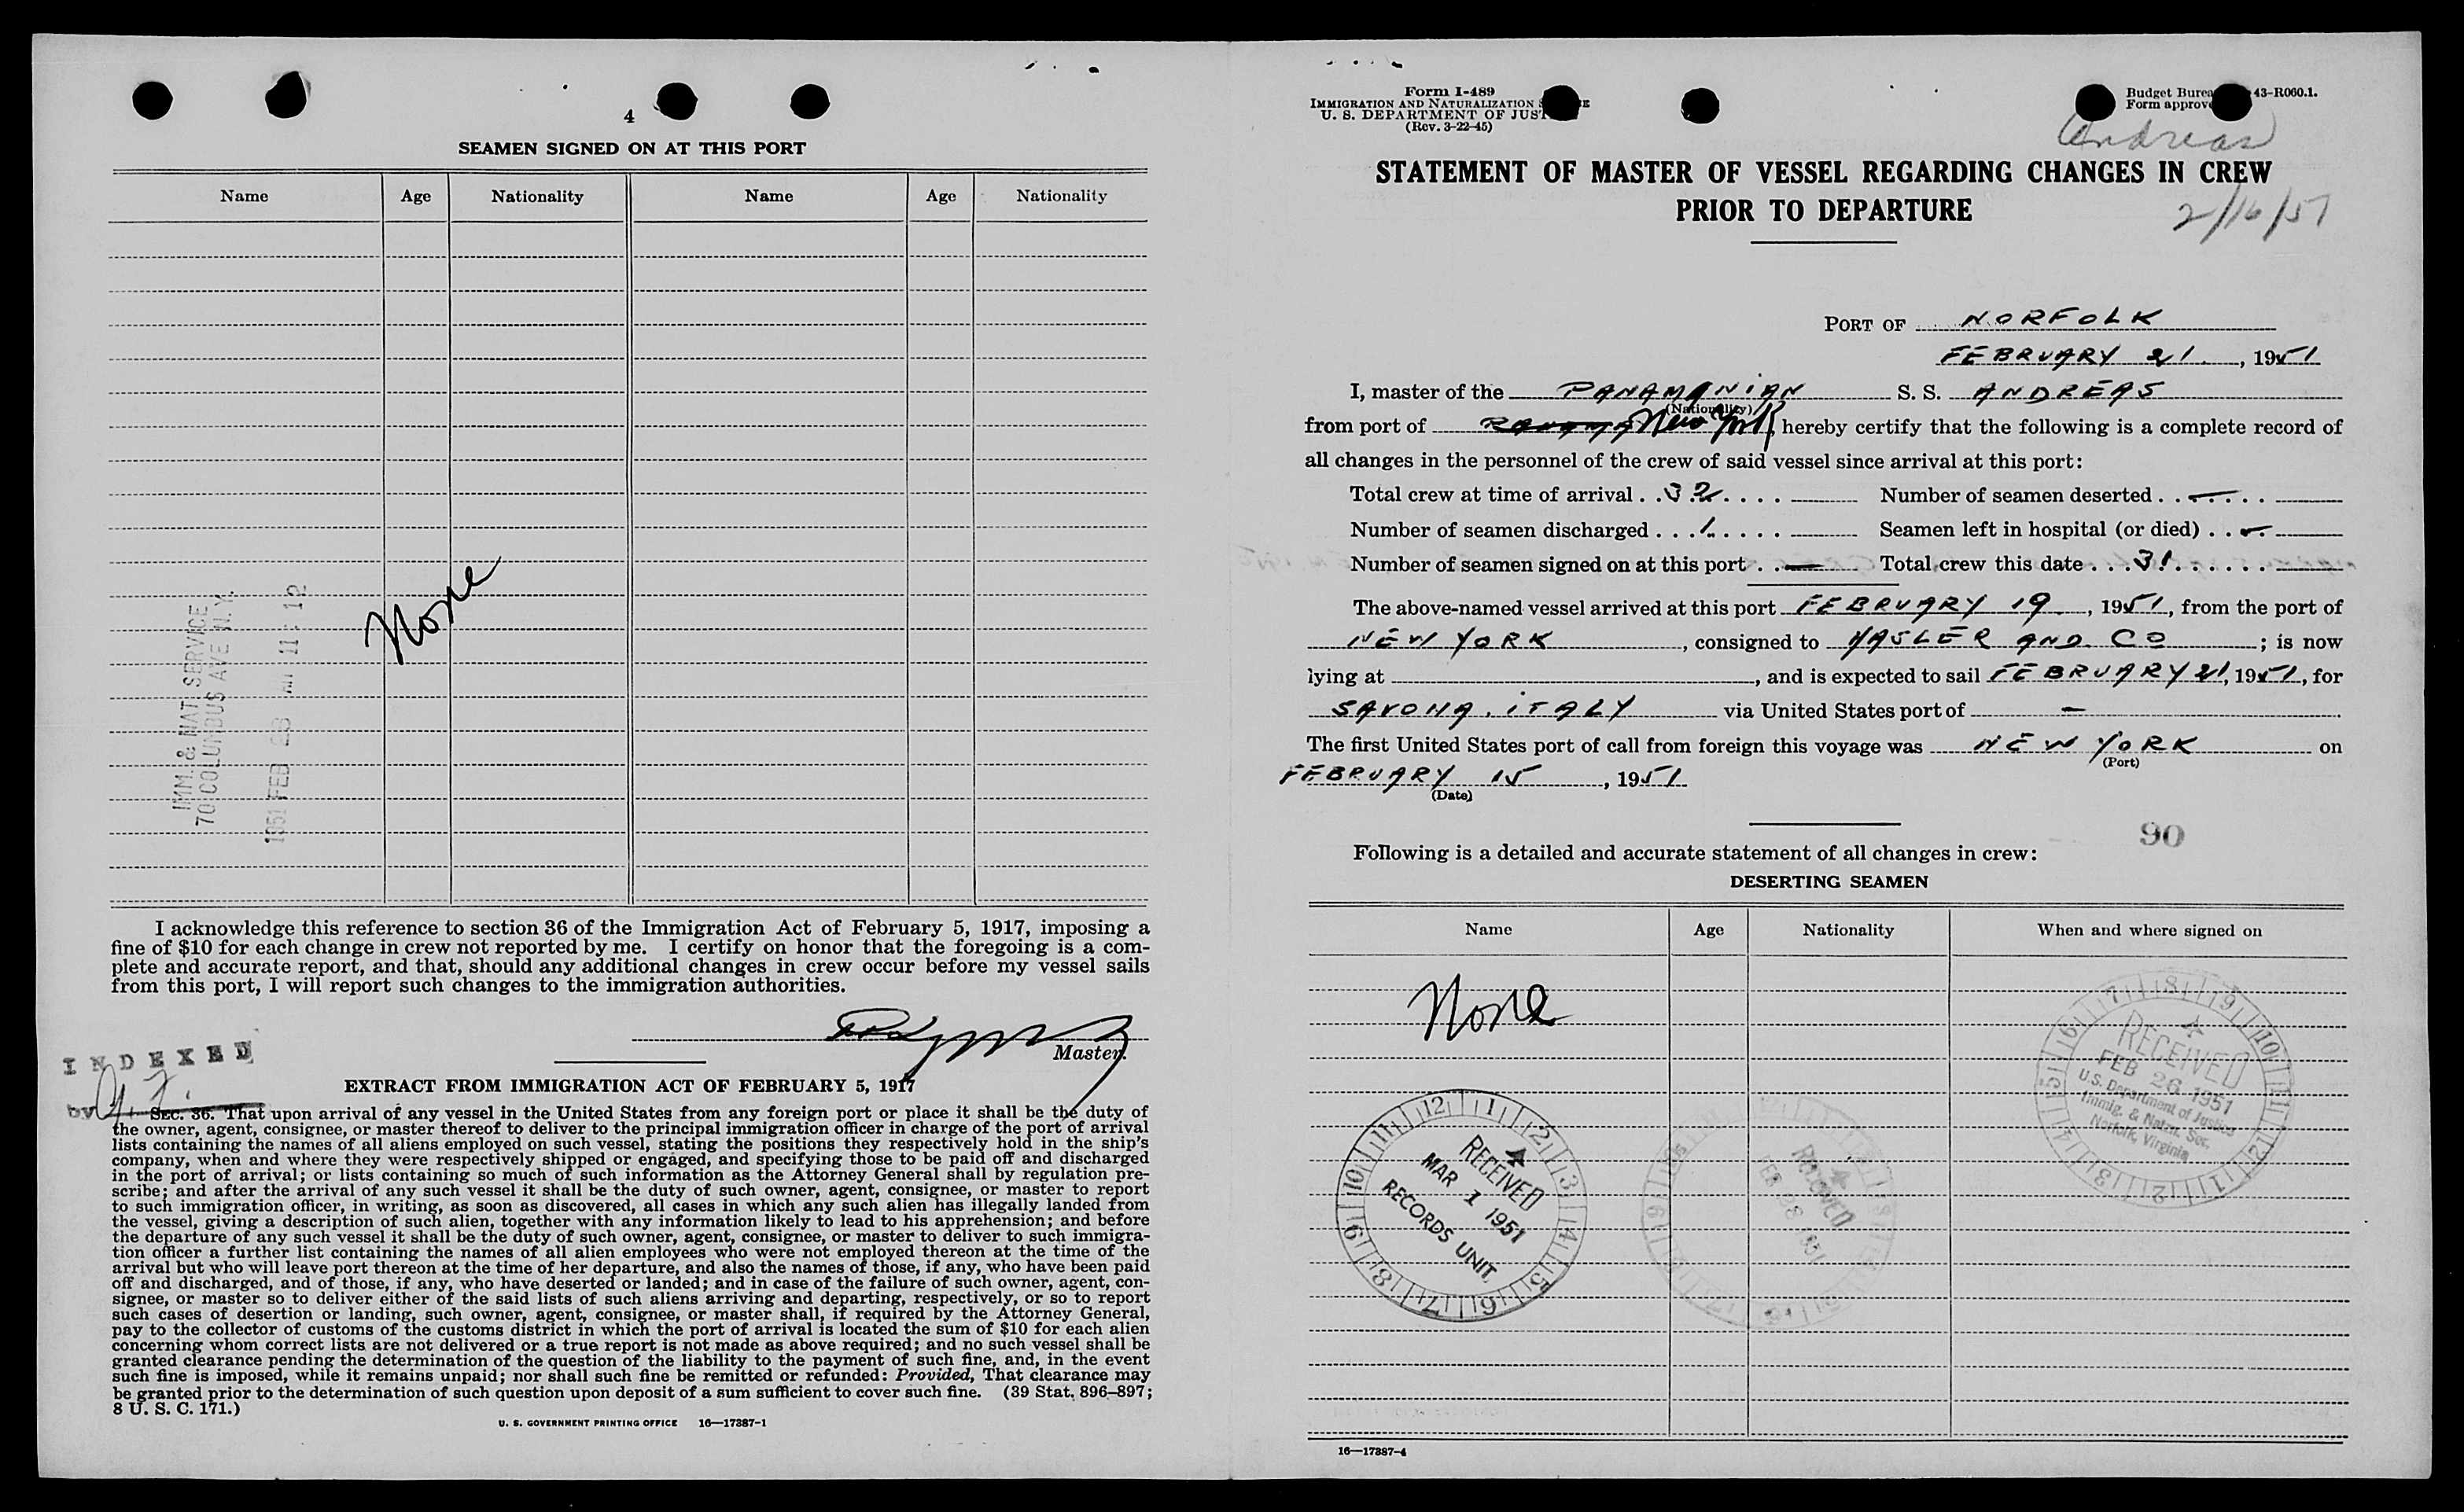 4
SEAMEN SIGNED ON AT THIS PORT
Name Age Nationality Name Age Nationality
None
IMM. & NAT. SERVICE
70 COLUMBUS AVE N.Y.
1951 FEB 28 AM 11:12
I acknowledge this reference to section 36 of the Immigration Act of February 5, 1917, imposing a
fine of $10 for each change in crew not reported by me. I certify on honor that the foregoing is a com-
plete and accurate report, and that, should any additional changes in crew occur before my vessel sails
from this port, I will report such changes to the immigration authorities.
Master.
INDEXED
by
EXTRACT FROM IMMIGRATION ACT OF FEBRUARY 5, 1917
SEC. 36. That upon arrival of any vessel in the United States from any foreign port or place it shall be the duty of
the owner, agent, consignee, or master thereof to deliver to the principal immigration officer in charge of the port of arrival
lists containing the names of all aliens employed on such vessel, stating the positions they respectively hold in the ship's
company, when and where they were respectively shipped or engaged, and specifying those to be paid off and discharged
in the port of arrival; or lists containing so much of such information as the Attorney General shall by regulation pre-
scribe; and after the arrival of any such vessel it shall be the duty of such owner, agent, consignee, or master to report
to such immigration officer, in writing, as soon as discovered, all cases in which any such alien has illegally landed from
the vessel, giving a description of such alien, together with any information likely to lead to his apprehension; and before
the departure of any such vessel it shall be the duty of such owner, agent, consignee, or master to deliver to such immigra-
tion officer a further list containing the names of all alien employees who were not employed thereon at the time of the
arrival but who will leave port thereon at the time of her departure, and also the names of those, if any, who have been paid
off and discharged, and of those, if any, who have deserted or landed; and in case of the failure of such owner, agent, con-
signee, or master so to deliver either of the said lists of such aliens arriving and departing, respectively, or so to report
such cases of desertion or landing, such owner, agent, consignee, or master shall, if required by the Attorney General,
pay to the collector of customs of the customs district in which the port of arrival is located the sum of $10 for each alien
concerning whom correct lists are not delivered or a true report is not made as above required; and no such vessel shall be
granted clearance pending the determination of the question of the liability to the payment of such fine, and, in the event
such fine is imposed, while it remains unpaid; nor shall such fine be remitted or refunded: Provided, That clearance may
be granted prior to the determination of such question upon deposit of a sum sufficient to cover such fine. (39 Stat. 896–897;
8 U. S. C. 171.)
U. S. GOVERNMENT PRINTING OFFICE 16—17387-1
Form I-489
IMMIGRATION AND NATURALIZATION
U. S. DEPARTMENT OF JUST
(Rev. 3-22-45)
Budget Burea 43-R060.1.
Form approve
Andreas
STATEMENT OF MASTER OF VESSEL REGARDING CHANGES IN CREW
PRIOR TO DEPARTURE
2/16/51
PORT OF NORFOLK
FEBRUARY 21, 1951
I, master of the PANAMANIAN S. S. ANDREAS
(Nationality)
from port of New York, hereby certify that the following is a complete record of
all changes in the personnel of the crew of said vessel since arrival at this port:
Total crew at time of arrival . . 32 . . . . Number of seamen deserted . . — . . .
Number of seamen discharged . . . 1 . . . . . Seamen left in hospital (or died) . . —
Number of seamen signed on at this port . . — Total crew this date . . . 31 . . . . . .
The above-named vessel arrived at this port FEBRUARY 19, 1951, from the port of
NEW YORK, consigned to HASLER AND CO; is now
lying at , and is expected to sail FEBRUARY 21, 1951, for
SAVONA. ITALY via United States port of —.
The first United States port of call from foreign this voyage was NEW YORK on
(Port)
FEBRUARY 15, 1951
(Date)
90
Following is a detailed and accurate statement of all changes in crew:
DESERTING SEAMEN
Name Age Nationality When and where signed on
None
RECEIVED
FEB 26 1951
U.S. Department of Justice
Immig. & Natzn. Ser.
Norfolk, Virginia
RECEIVED
MAR 1 1951
RECORDS UNIT
RECEIVED
FEB 28 1951
16—17387-4